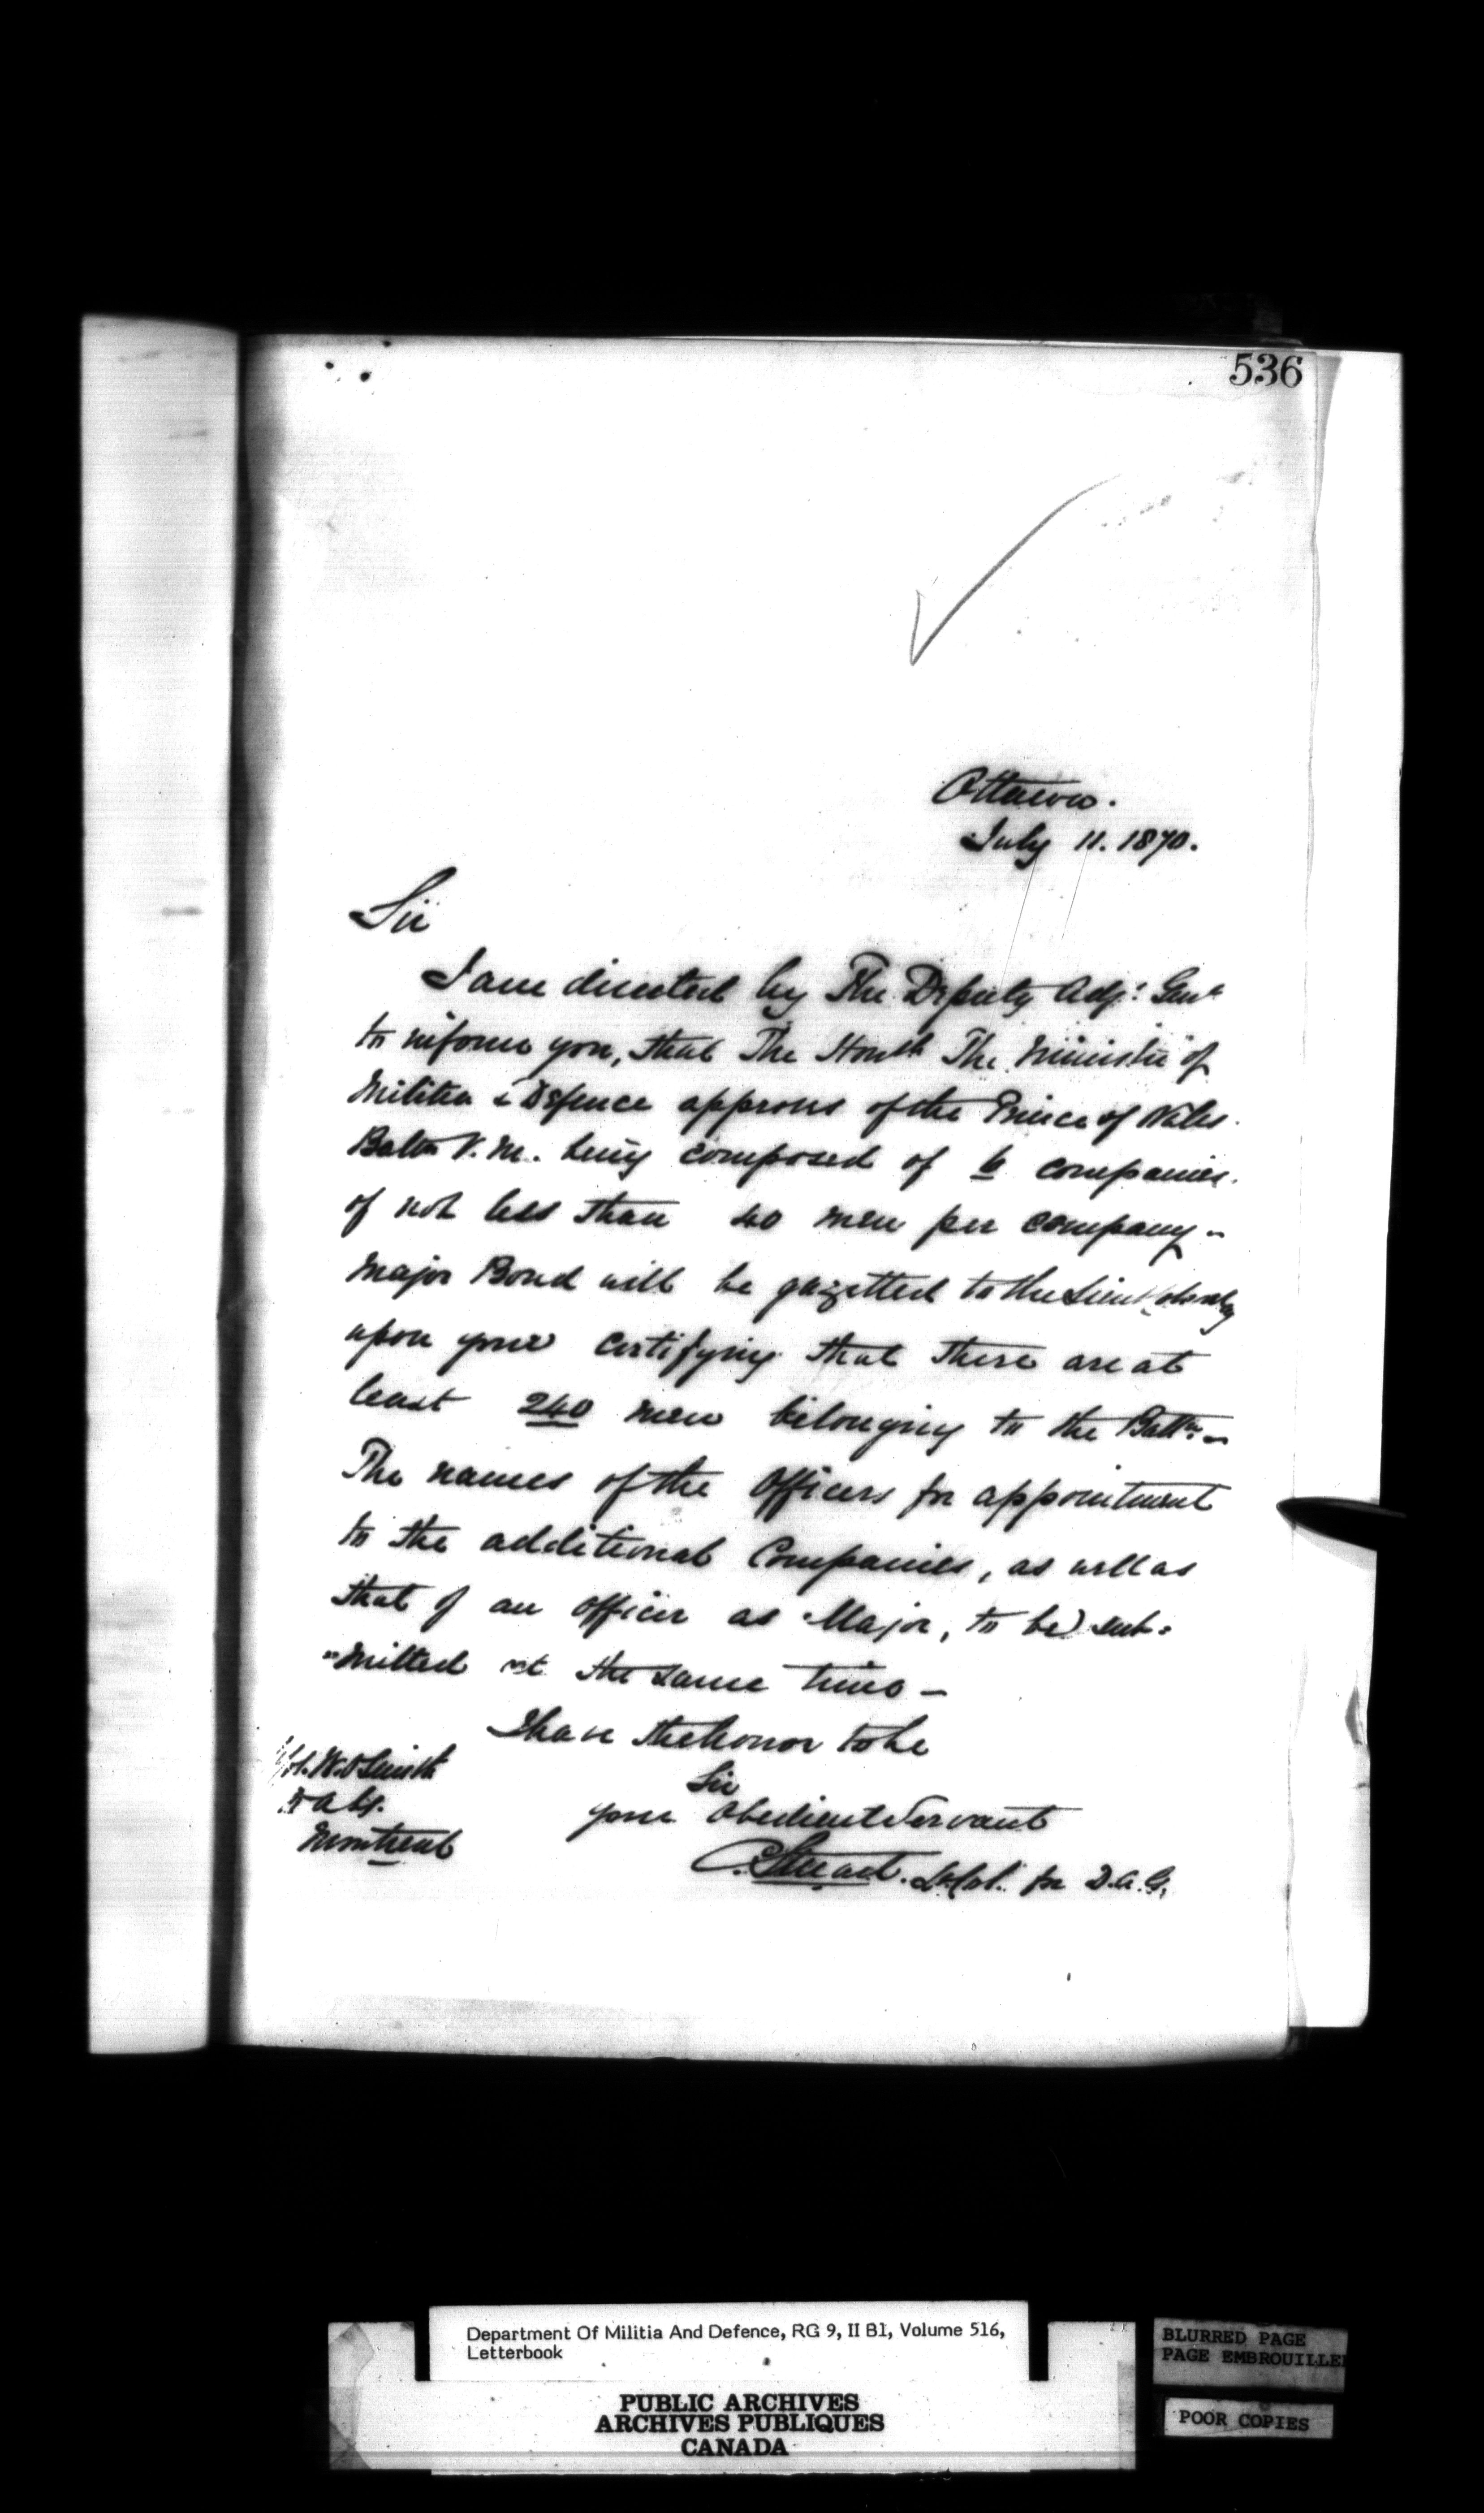 536
Ottawa.
July 11. 1870.
Sir
I am directed by The Deputy Adjt Genl
to inform you, that The Honble The Minister of
Militia & Defence approves of the Prince of Wales
Battn V.M. being composed of 6 companies
of not less than 40 men per company -
Major Bond will be gazetted to the Lieut Colonelcy
upon your certifying that there are at
least 240 men belonging to the Battn. -
The names of the Officers for appointment
to the additional Companies, as well as
that of an officer as Major, to be sub-
-mitted at the same time -
I have the honor to be
Sir
your Obedient Servant
Stuart. Lt Col. for D.A.G.
W. O Smith
D A G.
Montreal
Department Of Militia And Defence, RG 9, II B1, Volume 516,
Letterbook
PUBLIC ARCHIVES
ARCHIVES PUBLIQUES
CANADA
BLURRED PAGE
PAGE EMBROUILLEE
POOR COPIES